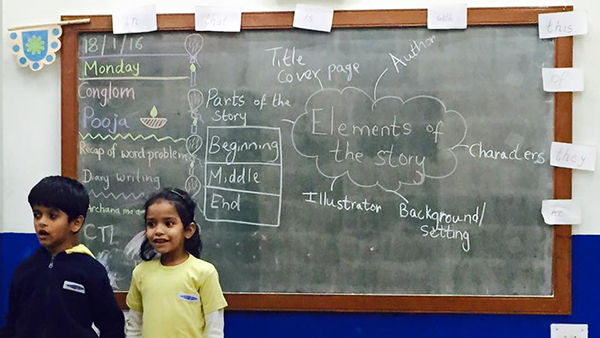 this
of
they
18/1/16
Monday
Conglom
Pooja
Recap of word problem
Diary writing
Archana ma'am
CTL
Parts of the
Story
Beginning
Middle
End
Title
Cover page
Author
Elements of
the story
Characters
Illustrator
Background/
Setting